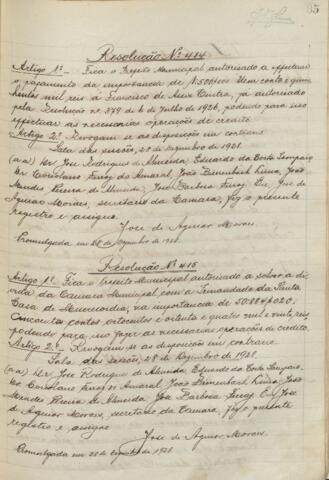 65
Resolução Nº 414
Artigo 1º - Fica o Prefeito Municipal autorizado a effectuar
o pagamento da importancia de 1:500$000 Um conto e qui-
nhentos mil reis a Francisco de Assis Cintra, já autorizado
pela Resolução nº 379 de 6 de Julho de 1926, podendo para isso
effectuar as necessarias operações de credito
Artigo 2º Revogam-se as disposições em contrario
Sala das sessões, 28 de Dezembro de 1928.
(aa) Dr José Rodrigues de Almeida, Eduardo da Costa Sampaio
Dr Coriolano Ferraz do Amaral, João Dienenbach Lima, João
Mendes Pereira de Almeida, José Barbosa Ferraz. Eu, José de
Aguiar Moraes, secretario da Camara, fiz o presente
registro e assigno.
José de Aguiar Moraes
Promulgada em 28 de Dezembro de 1928
Resolução Nº 415
Artigo 1º Fica o Prefeito Municipal autorizado a solver a di-
vida da Camara Municipal com a Irmandade da Santa
Casa de Misericordia, na importancia de 50:884$020.
Cincoenta contos oitocentos e oitenta e quatro mil e vinte reis,
podendo para isso fazer as necessarias operações de credito.
Artigo 2º Revogam-se as disposições em contrario.
Sala das sessões, 28 de Dezembro de 1928.
(aa) Dr José Rodrigues de Almeida, Eduardo da Costa Sampaio,
Dr Coriolano Ferraz do Amaral, João Dienenbach Lima, João
Mendes Pereira de Almeida, José Barbosa Ferraz Eu José
de Aguiar Moraes, secretario da Camara, fiz o presente
registro e assigno
José de Aguiar Moraes
Promulgada em 28 de Dezembro de 1928